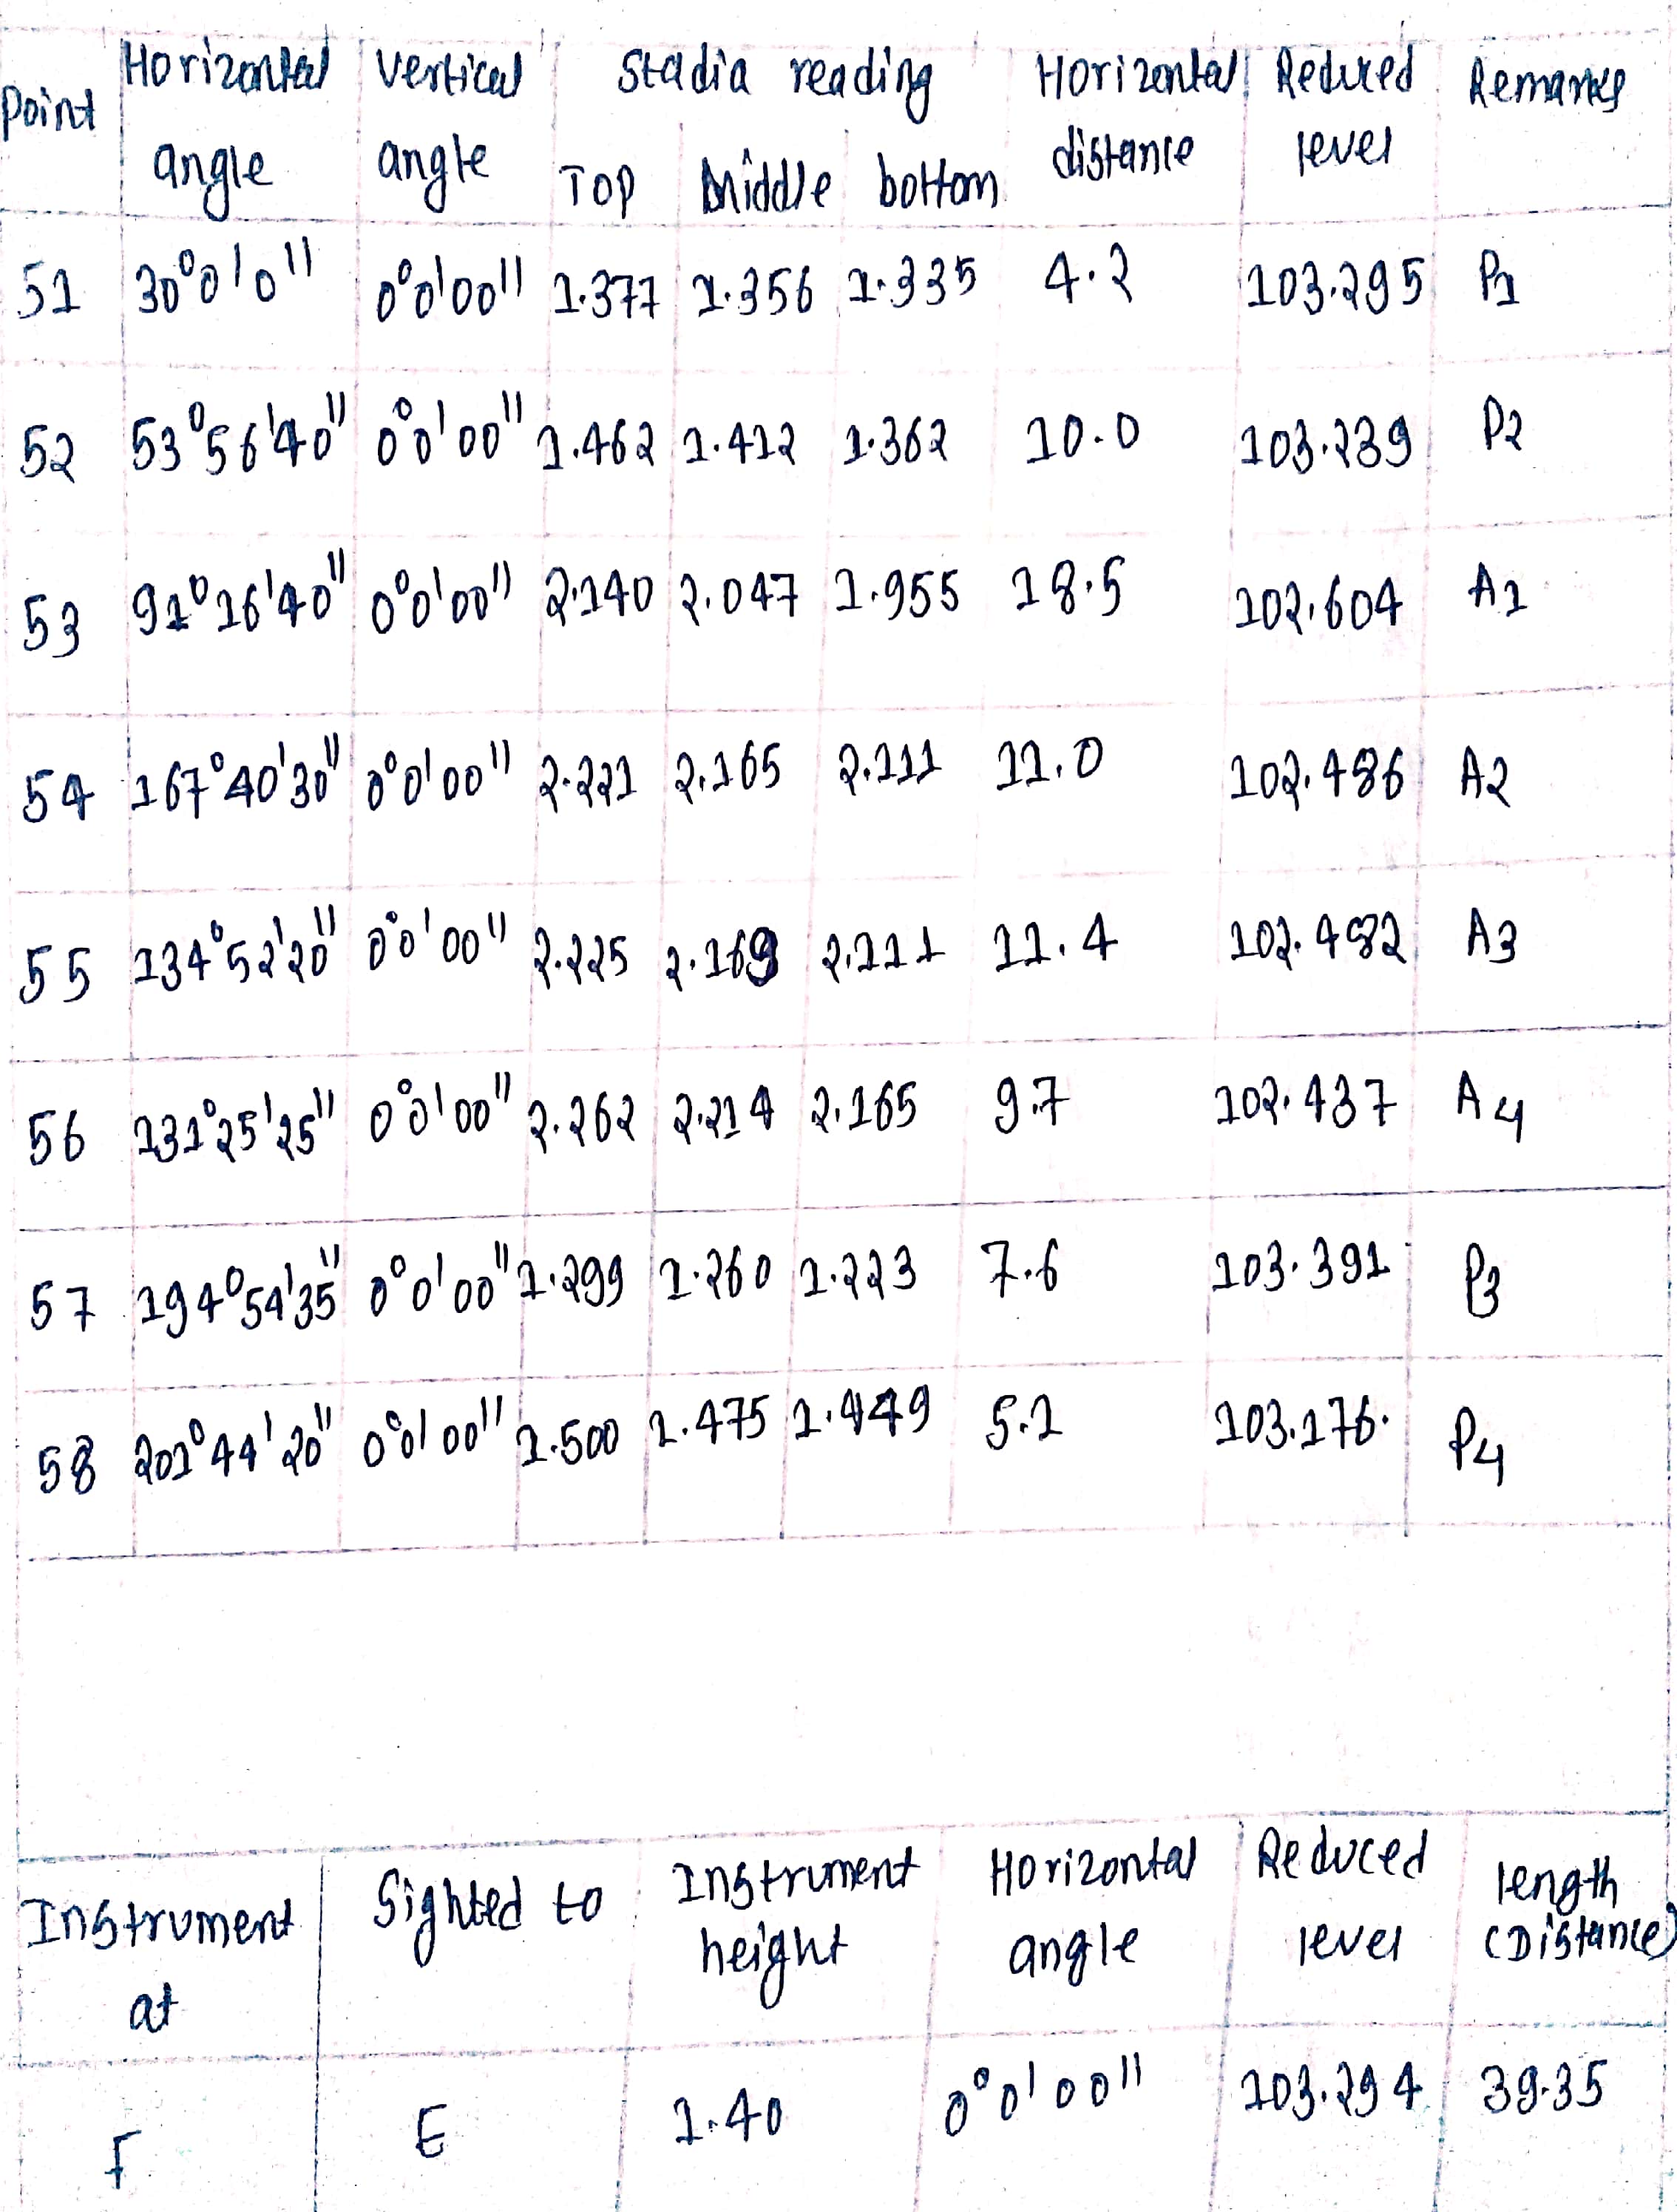 Point Horizontal angle Vertical angle Stadia reading Horizontal distance Reduced level Remarks
Top Middle bottom
51 30°0'0" 0°0'00" 1.377 1.356 1.335 4.2 103.295 P1
52 53°56'40" 0°0'00" 1.462 1.412 1.362 10.0 103.239 P2
53 91°16'40" 0°0'00" 2.140 2.047 1.955 18.5 102.604 A1
54 167°40'30" 0°0'00" 2.221 2.165 2.111 11.0 102.486 A2
55 134°52'20" 0°0'00" 2.225 2.169 2.111 11.4 102.482 A3
56 131°25'25" 0°0'00" 2.262 2.214 2.165 9.7 102.437 A4
57 194°54'35" 0°0'00" 1.299 1.260 1.223 7.6 103.391 P3
58 201°44'20" 0°0'00" 1.500 1.475 1.449 5.1 103.176. P4
Instrument at Sighted to Instrument height Horizontal angle Reduced level length (Distance)
F E 1.40 0°0'00" 103.294 39.35